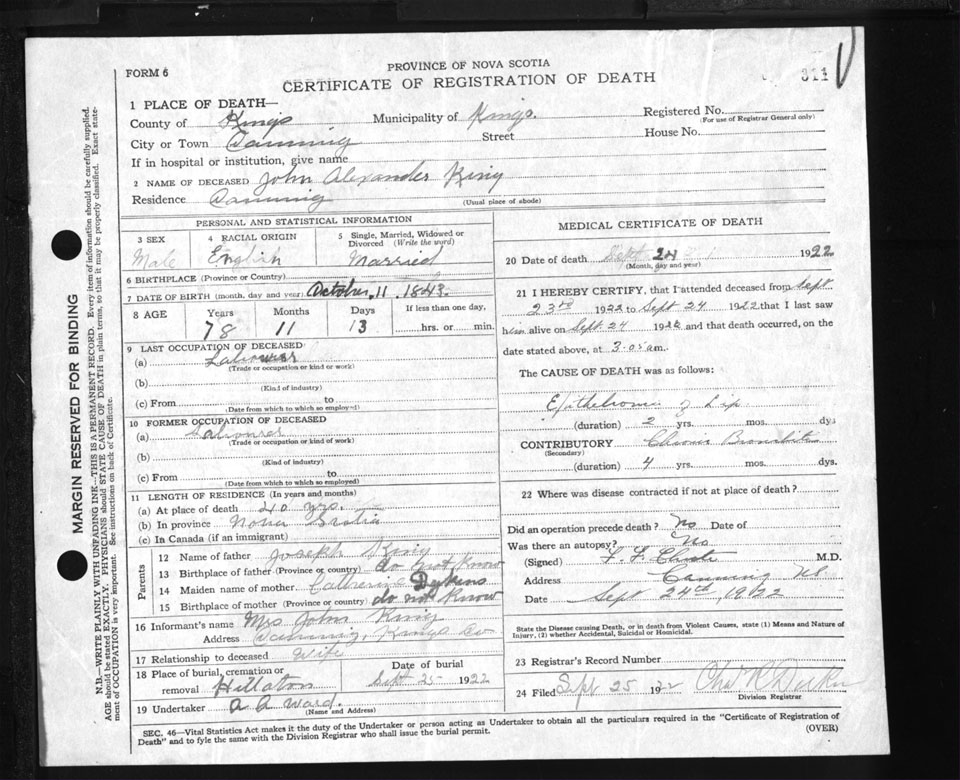 PROVINCE OF NOVA SCOTIA
FORM 6
CERTIFICATE OF REGISTRATION OF DEATH
311
1 PLACE OF DEATH—
County of Kings Municipality of Kings. Registered No.
(For use of Registrar General only)
City or Town Canning Street House No.
If in hospital or institution, give name
2 NAME OF DECEASED John Alexander King
Residence Canning (Usual place of abode)
PERSONAL AND STATISTICAL INFORMATION
3 SEX 4 RACIAL ORIGIN 5 Single, Married, Widowed or Divorced (Write the word)
Male English Married
6 BIRTHPLACE (Province or Country)
7 DATE OF BIRTH (month, day and year) October 11, 1843.
8 AGE Years Months Days If less than one day,
78 11 13 hrs. or min.
9 LAST OCCUPATION OF DECEASED
(a) Labourer
(Trade or occupation or kind or work)
(b)
(Kind of industry)
(c) From to
(Date from which to which so employed)
10 FORMER OCCUPATION OF DECEASED
(a) Labourer
(Trade or occupation or kind of work)
(b)
(Kind of industry)
(c) From to
(Date from which to which so employed)
11 LENGTH OF RESIDENCE (In years and months)
(a) At place of death 40 yrs.
(b) In province Nova Scotia
(c) In Canada (if an immigrant)
Parents
12 Name of father Joseph King
13 Birthplace of father (Province or country) do not know
14 Maiden name of mother Catherine Dykins
15 Birthplace of mother (Province or country) do not know
16 Informant's name Mrs John King
Address Canning, Kings Co
17 Relationship to deceased Wife
18 Place of burial, cremation or removal Hillaton Date of burial Sept 25 1922
19 Undertaker A A Ward.
(Name and Address)
MEDICAL CERTIFICATE OF DEATH
20 Date of death Sept 24 1922
(Month, day and year)
21 I HEREBY CERTIFY, that I attended deceased from Sept
23rd 1922 to Sept 24 1922 that I last saw
him alive on Sept 24 1922 and that death occurred, on
date stated above, at 3.05 am.
The CAUSE OF DEATH was as follows:
Epithelioma of Lip
(duration) 2 yrs. mos. dys
CONTRIBUTORY Chronic Bronchitis
(Secondary)
(duration) 4 yrs. mos. dys.
22 Where was disease contracted if not at place of death?
Did an operation precede death? No Date of
Was there an autopsy? No
(Signed) M.D.
Address Canning NS
Date Sept 24th, 1922
State the Disease causing Death, or in death from Violent Causes, state (1) Means and Nature of
Injury, (2) whether Accidental, Suicidal or Homicidal.
23 Registrar's Record Number
24 Filed Sept 25 1922 Chas R
Division Registrar
SEC. 46—Vital Statistics Act makes it the duty of the Undertaker or person acting as Undertaker to obtain all the particulars required in the "Certificate of Registration of
Death" and to fyle the same with the Division Registrar who shall issue the burial permit. (OVER)
MARGIN RESERVED FOR BINDING
N.B.—WRITE PLAINLY WITH UNFADING INK—THIS IS A PERMANENT RECORD. Every item of information should be carefully supplied.
AGE should be stated EXACTLY. PHYSICIANS should STATE CAUSE OF DEATH in plain terms, so that it may be properly classified. Exact state-
ment of OCCUPATION is very important. See instructions on back of Certificate.